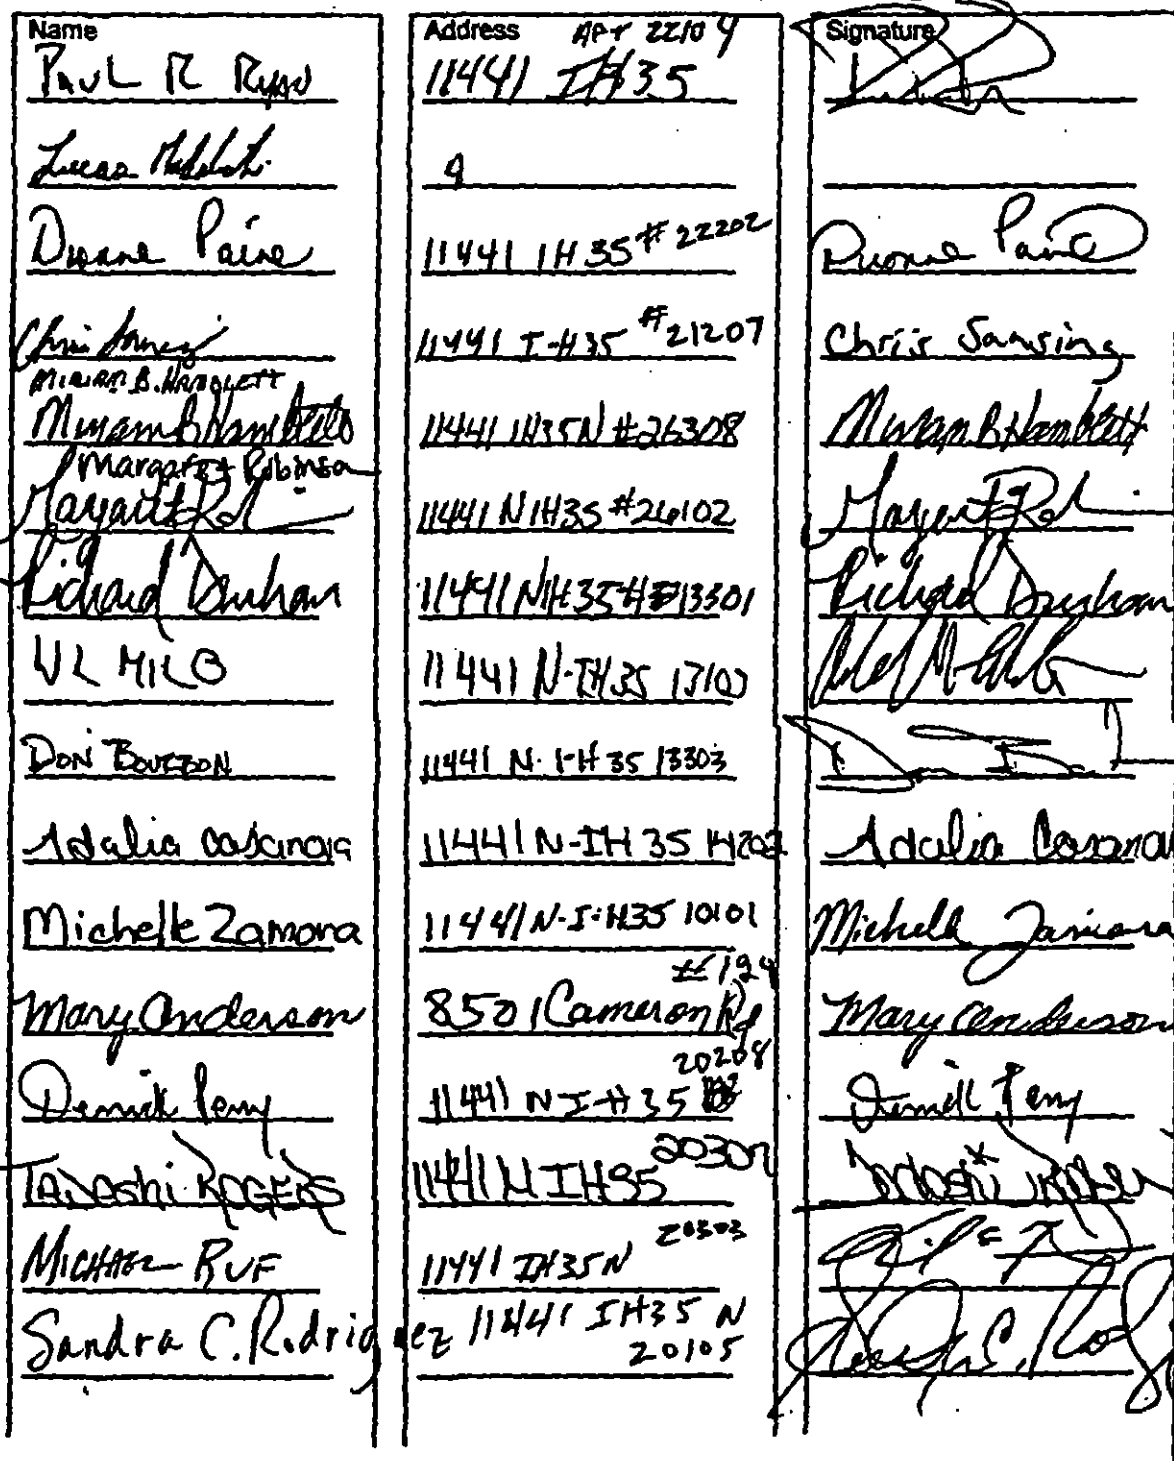 Name Address Signature
APT 22104
PAUL R RYAN 11441 IH35
Lucas
Dionne Paine 11441 IH 35 #22202 Dionne Paine
Chris 11441 I-H35 #21207 Chris Sansing
MIRIAM B. HAMBLETT
Miriam B Hamblett 11441 IH35N #26308 Miriam B Hamblett
Margaret Robinson
Margaret Rob 11441 N IH35 #26102 Margaret Rob
Richard Dunham 11441 N IH 35 # 13301 Richard Dunham
VL MILO 11441 N-IH35 13103
DON BOURBON 11441 N. I-H 35 13303
Adalia Casanova 11441 N-IH 35 14202 Adalia Casanova
Michelle Zamora 11441 N-I-H35 10101 Michelle Zamora
#194
Mary Anderson 8501 Cameron Rd Mary Anderson
20208
Derrick Perry 11441 N I-H 35 Derrick Perry
20302
TADASHI ROGERS 11441 N IH35 Tadashi Rogers
20303
MICHAEL RUF 11441 IH35N
Sandra C. Rodriguez 11441 IH35 N
20105